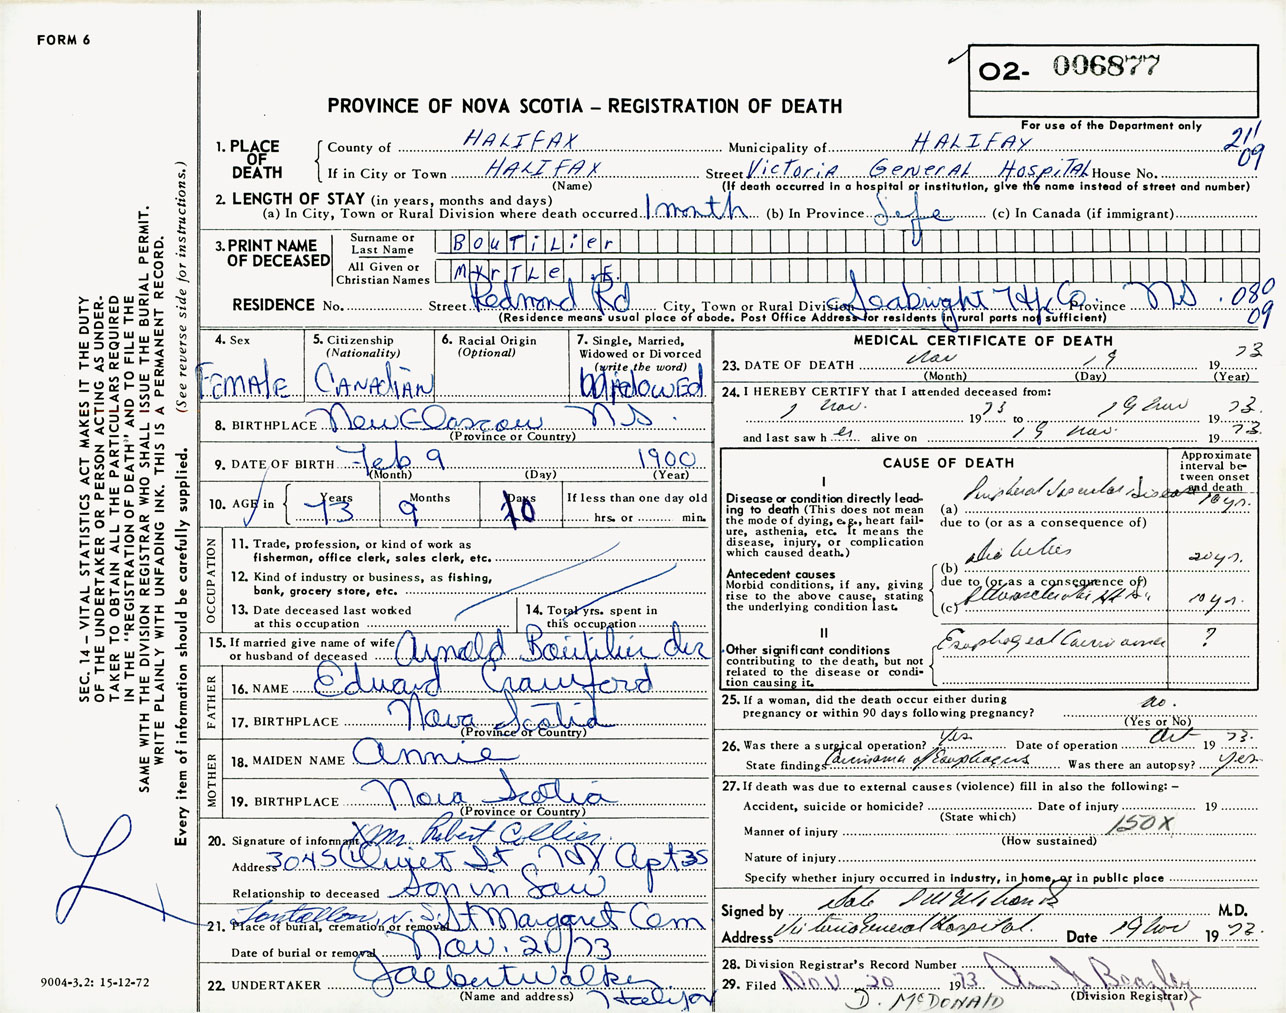 FORM 6
02- 006877
PROVINCE OF NOVA SCOTIA – REGISTRATION OF DEATH
For use of the Department only
211
09
1. PLACE OF DEATH
County of HALIFAX Municipality of HALIFAX
If in City or Town HALIFAX Street Victoria General Hospital House No.
(Name) (If death occurred in a hospital or institution, give the name instead of street and number)
2. LENGTH OF STAY (in years, months and days)
(a) In City, Town or Rural Division where death occurred 1 month (b) In Province Life (c) In Canada (if immigrant)
3. PRINT NAME OF DECEASED
Surname or Last Name Boutilier
All Given or Christian Names Myrtle E.
RESIDENCE No. Street Redmond Rd City, Town or Rural Division Seabright Hfx Co. Province NS. 080
09
(Residence means usual place of abode. Post Office Address for residents in rural parts not sufficient)
4. Sex Female
5. Citizenship (Nationality) Canadian
6. Racial Origin (Optional)
7. Single, Married, Widowed or Divorced (write the word) Widowed
8. BIRTHPLACE New Glasgow NS.
(Province or Country)
9. DATE OF BIRTH Feb 9 1900
(Month) (Day) (Year)
10. AGE in Years 73 Months 9 Days 10 If less than one day old hrs. or min.
OCCUPATION
11. Trade, profession, or kind of work as fisherman, office clerk, sales clerk, etc.
12. Kind of industry or business, as fishing, bank, grocery store, etc.
13. Date deceased last worked at this occupation
14. Total yrs. spent in this occupation
15. If married give name of wife or husband of deceased Arnold Boutilier dec
FATHER
16. NAME Edward Crawford
17. BIRTHPLACE Nova Scotia
(Province or Country)
MOTHER
18. MAIDEN NAME Annie
19. BIRTHPLACE Nova Scotia
(Province or Country)
20. Signature of informant X Mr. Robert Collier
Address 3045 Olivet St Hfx Apt 35
Relationship to deceased Son in Law
21. Place of burial, cremation or removal Tantallon, N.S. St Margaret Cem
Date of burial or removal Nov. 21/73
22. UNDERTAKER J Albert Walker
(Name and address) Halifax
MEDICAL CERTIFICATE OF DEATH
23. DATE OF DEATH Nov 19 1973
(Month) (Day) (Year)
24. I HEREBY CERTIFY that I attended deceased from:
1 Nov. 1973 to 19 Nov 1973.
and last saw her alive on 19 Nov. 1973.
CAUSE OF DEATH
Approximate interval between onset and death
I
Disease or condition directly leading to death (This does not mean the mode of dying, e.g., heart failure, asthenia, etc. It means the disease, injury, or complication which caused death.)
(a) Peripheral Vascular Disease 10 yr.
due to (or as a consequence of)
Antecedent causes
Morbid conditions, if any, giving rise to the above cause, stating the underlying condition last.
(b) Diabetes 20 yr.
due to (or as a consequence of)
(c) Arteriosclerotic Ht Dis. 10 yr.
II
Other significant conditions contributing to the death, but not related to the disease or condition causing it.
Esophageal Carcinoma ?
25. If a woman, did the death occur either during pregnancy or within 90 days following pregnancy? no.
(Yes or No)
26. Was there a surgical operation? Yes Date of operation Oct 1973.
State findings Carcinoma of Esophagus Was there an autopsy? Yes
27. If death was due to external causes (violence) fill in also the following: –
Accident, suicide or homicide? Date of injury 19
(State which)
Manner of injury 150X
(How sustained)
Nature of injury
Specify whether injury occurred in industry, in home, or in public place
Signed by M.D.
Address Victoria General Hospital. Date 19 Nov 1973.
28. Division Registrar's Record Number
29. Filed Nov 20 1973
(Division Registrar)
D. McDONAID
SEC. 14 – VITAL STATISTICS ACT MAKES IT THE DUTY
OF THE UNDERTAKER OR PERSON ACTING AS UNDER-
TAKER TO OBTAIN ALL THE PARTICULARS REQUIRED
IN THE "REGISTRATION OF DEATH" AND TO FILE THE
SAME WITH THE DIVISION REGISTRAR WHO SHALL ISSUE THE BURIAL PERMIT.
WRITE PLAINLY WITH UNFADING INK. THIS IS A PERMANENT RECORD.
Every item of information should be carefully supplied. (See reverse side for instructions.)
9004-3.2: 15-12-72